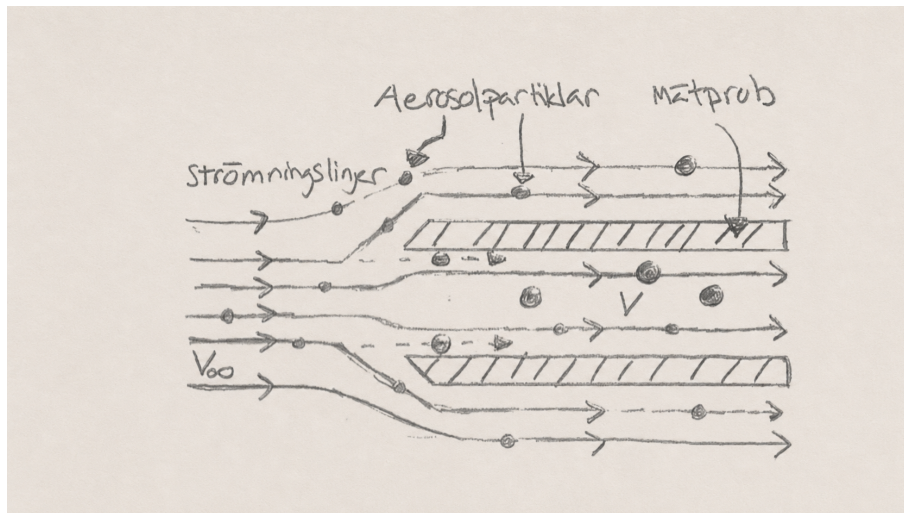 Aerosolpartiklar
Mätprob
Strömningslinjer
V
V∞